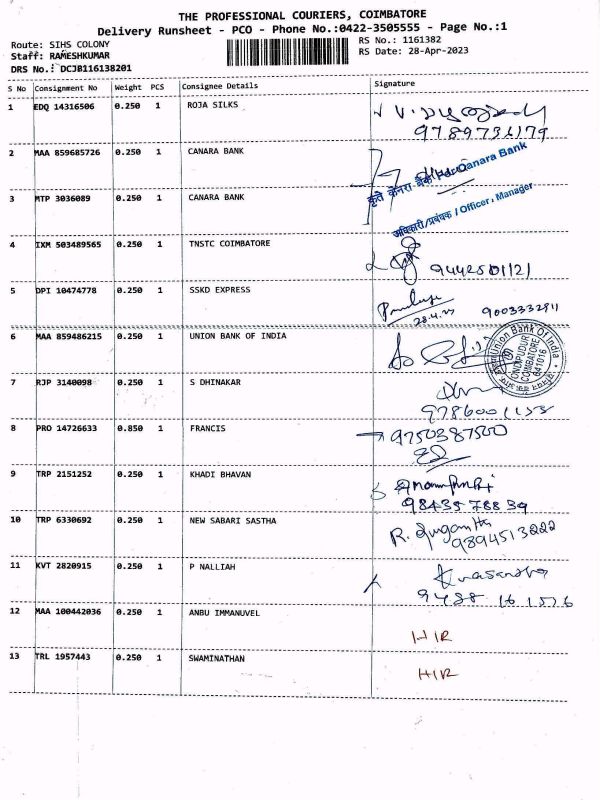 THE PROFESSIONAL COURIERS, COIMBATORE
Delivery Runsheet - PCO - Phone No.:0422-3505555 - Page No.:1
Route: SIHS COLONY
RS No.: 1161382
Staff: RAMESHKUMAR
RS Date: 28-Apr-2023
DRS No.: DCJB116138201
S No Consignment No Weight PCS Consignee Details Signature
1 EDQ 14316506 0.250 1 ROJA SILKS
9789731179
2 MAA 859685726 0.250 1 CANARA BANK
कृते केनरा बैंक / For Canara Bank
3 MTP 3036089 0.250 1 CANARA BANK
अधिकारी/प्रबंधक / Officer, Manager
4 IXM 503489565 0.250 1 TNSTC COIMBATORE
9442501121
5 DPI 10474778 0.250 1 SSKD EXPRESS
28.4.23 9003332811
6 MAA 859486215 0.250 1 UNION BANK OF INDIA
Union Bank Of India
ONDIPUDUR
COIMBATORE
641016
7 RJP 3140098 0.250 1 S DHINAKAR
8 PRO 14726633 0.850 1 FRANCIS
9750387500
9 TRP 2151252 0.250 1 KHADI BHAVAN
9843578839
10 TRP 6330692 0.250 1 NEW SABARI SASTHA
9894513222
11 KVT 2820915 0.250 1 P NALLIAH
9488 161576
12 MAA 100442036 0.250 1 ANBU IMMANUVEL
HIR
13 TRL 1957443 0.250 1 SWAMINATHAN
HIR